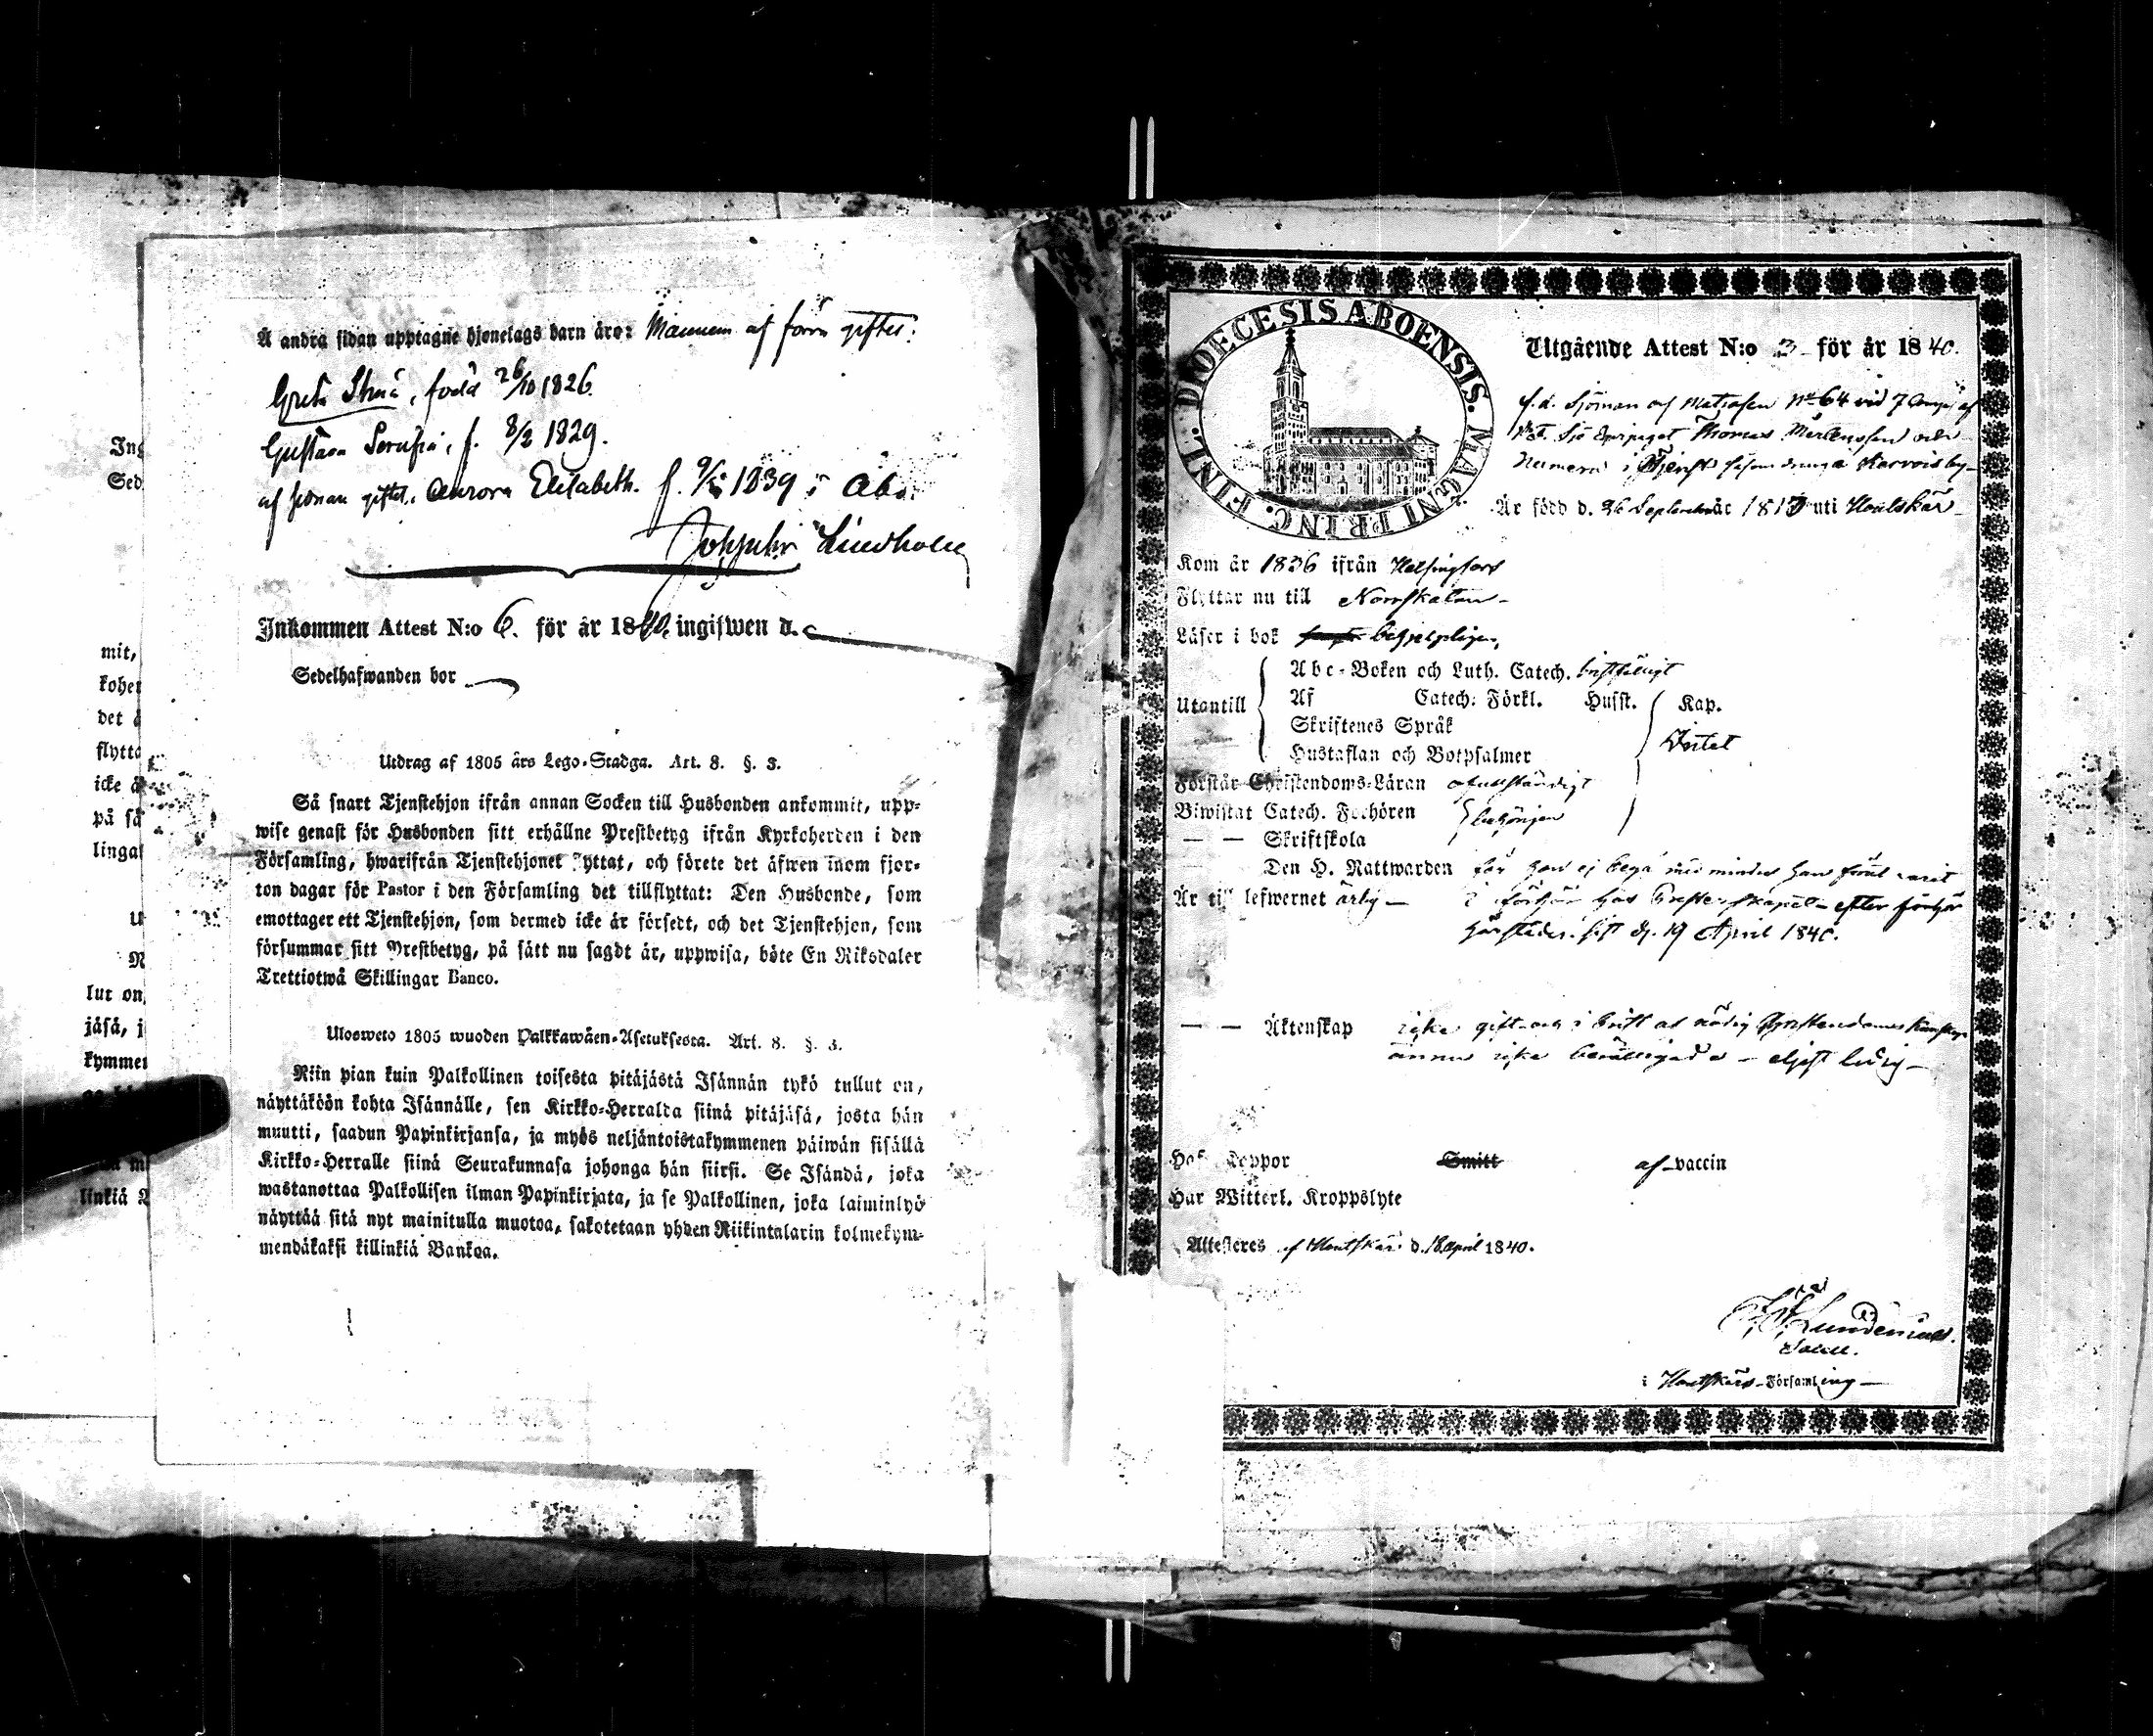 Å andra sidan upptagne hjonelags barn äro: Mannens af förra giftet:
Greta Stina, född 26/10 1826.
Gustava Serafia, f. 8/2 1829.
af senare giftet. Aurora Elisabeth. f. 1839 i Åbo.
Lindholm
Inkommen Attest N:o 6. för år 1840. ingifwen d.
Sedelhafwanden bor
Utdrag af 1805 års Lego-Stadga. Art. 8. §. 3.
Så snart Tjenstehjon ifrån annan Socken till Husbonden ankommit, upp-
wise genast för Husbonden sitt erhållne Prestbetyg ifrån Kyrkoherden i den
Församling, hwarifrån Tjenstehjonet flyttat, och förete det äfwen inom fjor-
ton dagar för Pastor i den Församling det tillflyttat: Den Husbonde, som
emottager ett Tjenstehjon, som dermed icke är försedt, och det Tjenstehjon, som
försummar sitt Prestbetyg, på sätt nu sagdt är, uppwisa, böte En Riksdaler
Trettiotwå Skillingar Banco.
Ulosweto 1805 wuoden Palkkawäen-Asetuksesta. Art. 8. §. 3.
Niin pian kuin Palkollinen toisesta pitäjästä Isännän tykö tullut on,
näyttäköön kohta Isännälle, sen Kirkko-Herralda siinä pitäjäsä, josta hän
muutti, saadun Papinkirjansa, ja myös neljäntoistakymmenen päiwän sisällä
Kirkko-Herralle siinä Seurakunnasa johonga hän siirsi. Se Isändä, joka
wastanottaa Palkollisen ilman Papinkirjata, ja se Palkollinen, joka laiminlyö
näyttää sitä nyt mainitulla muotoa, sakotetaan yhden Riikintalarin kolmekym-
mendäkaksi killinkiä Bankoa.
Ing
Sed
mit,
koher
det
flytta
icke
på så
lingar
lut on
jäsä,
kymmen
linkiä
DIOECESIS ABOENSIS. MAGNI PRINC. FINL.
Utgående Attest N:o 3 för år 1840.
f.d. Sjöman af Matrosen No 64 vid 7 Comp. af
Sjö Equipaget Thomas Mårtensson
numera i tjenst
Är född d. 26 September år uti Houtskär
Kom år 1836 ifrån Helsingfors
Flyttar nu till Norrskatan
Läser i bok
Utantill
Abc-Boken och Luth. Catech. bristfälligt
Af Catech: Förkl. Husst. Kap.
Skriftenes Språk
Hustaflan och Botpsalmer
Intet
Förstår Christendoms-Läran ofullständigt
Biwistat Catech. Förhören
— — Skriftskola
Den H. Nattwarden får han ej begå med mindre han förut warit
Är till lefwernet ärlig — i förhör hos Presterskapet — efter förhör
härstädes sist d. 19 April 1840.
— — Äktenskap icke gift och i brist af nödig Christendoms kunskap
ännu icke berättigad — eljest ledig —
Haft Koppor Smitt af vaccin
Har Witterl. Kroppslyte
Attesteres af Houtskär d. 18 April 1840.
Lundenius.
i Houtskärs Församling —